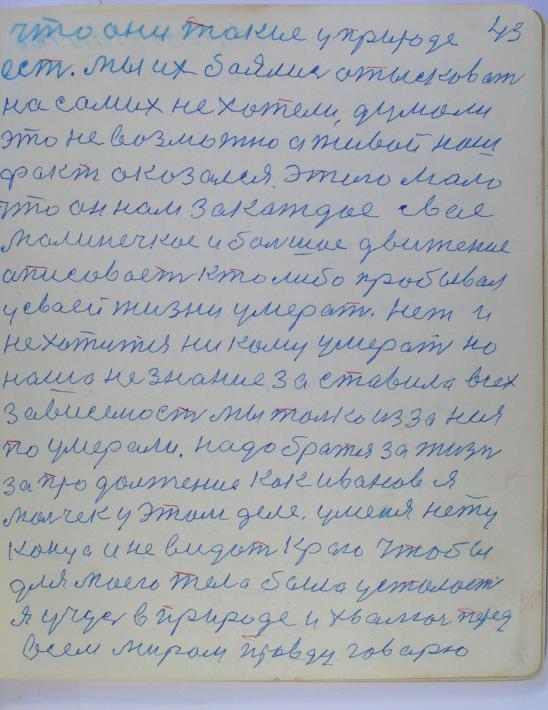 43
что они такие у природе
ест. мы их боялис отысковат
на самих не хотели, думали
это не возможно а живой наш
факт оказался. Этого мало
что он нам за каждое свое
малинечкое и болшое движение
аписовает кто либо пробывал
у сваей жизни умерат. Нет и
не хотится никому умерат но
наша не знание заставила всех
зависемост мы толко из за ния
по умерали. надо братя за жизн
за продолжение как иванов я
молчек у этом деле. у меня нету
конца и не видат краю чтобы
для моего тела была усталост
я учус в природе и хвалюс перед
всем миром правду говарю